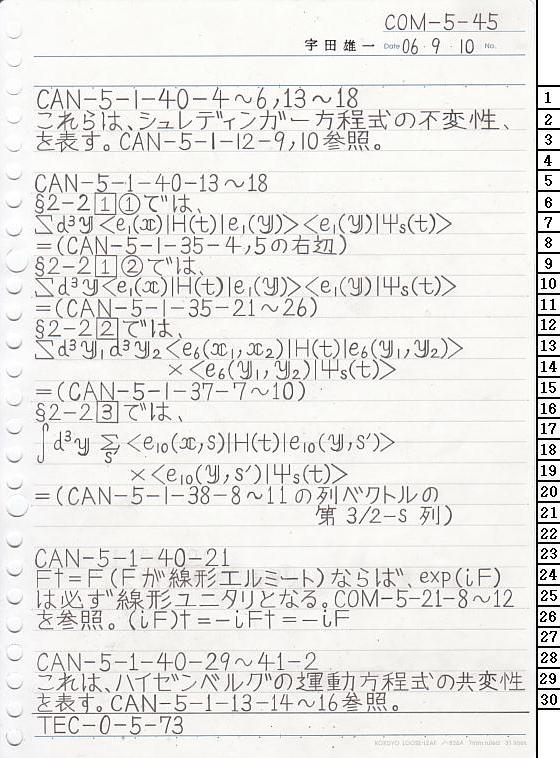 COM-5-45
宇田雄一 Date 06・9・10 No.
CAN-5-1-40-4～6,13～18
これらは、シュレディンガー方程式の不変性、
を表す。CAN-5-1-12-9,10参照。
CAN-5-1-40-13～18
§2-2 1 ①では、
∑d³y<e₁(x)|H(t)|e₁(y)><e₁(y)|Ψs(t)>
=(CAN-5-1-35-4,5の右辺)
§2-2 1 ②では、
∑d³y<e₁(x)|H(t)|e₁(y)><e₁(y)|Ψs(t)>
=(CAN-5-1-35-21～26)
§2-2 2 では、
∑d³y₁d³y₂<e₆(x₁,x₂)|H(t)|e₆(y₁,y₂)>
×<e₆(y₁,y₂)|Ψs(t)>
=(CAN-5-1-37-7～10)
§2-2 3 では、
∫d³y ∑s' <e₁₀(x,s)|H(t)|e₁₀(y,s')>
×<e₁₀(y,s')|Ψs(t)>
=(CAN-5-1-38-8～11の列ベクトルの
第 3/2-s 列)
CAN-5-1-40-21
F†=F(Fが線形エルミート)ならば、exp(iF)
は必ず線形ユニタリとなる。COM-5-21-8～12
を参照。(iF)†=-iF†=-iF
CAN-5-1-40-29～41-2
これは、ハイゼンベルグの運動方程式の共変性
を表す。CAN-5-1-13-14～16参照。
TEC-0-5-73
KOKUYO LOOSE-LEAF ノ-836A 7mm ruled 31 lines
1
2
3
4
5
6
7
8
9
10
11
12
13
14
15
16
17
18
19
20
21
22
23
24
25
26
27
28
29
30